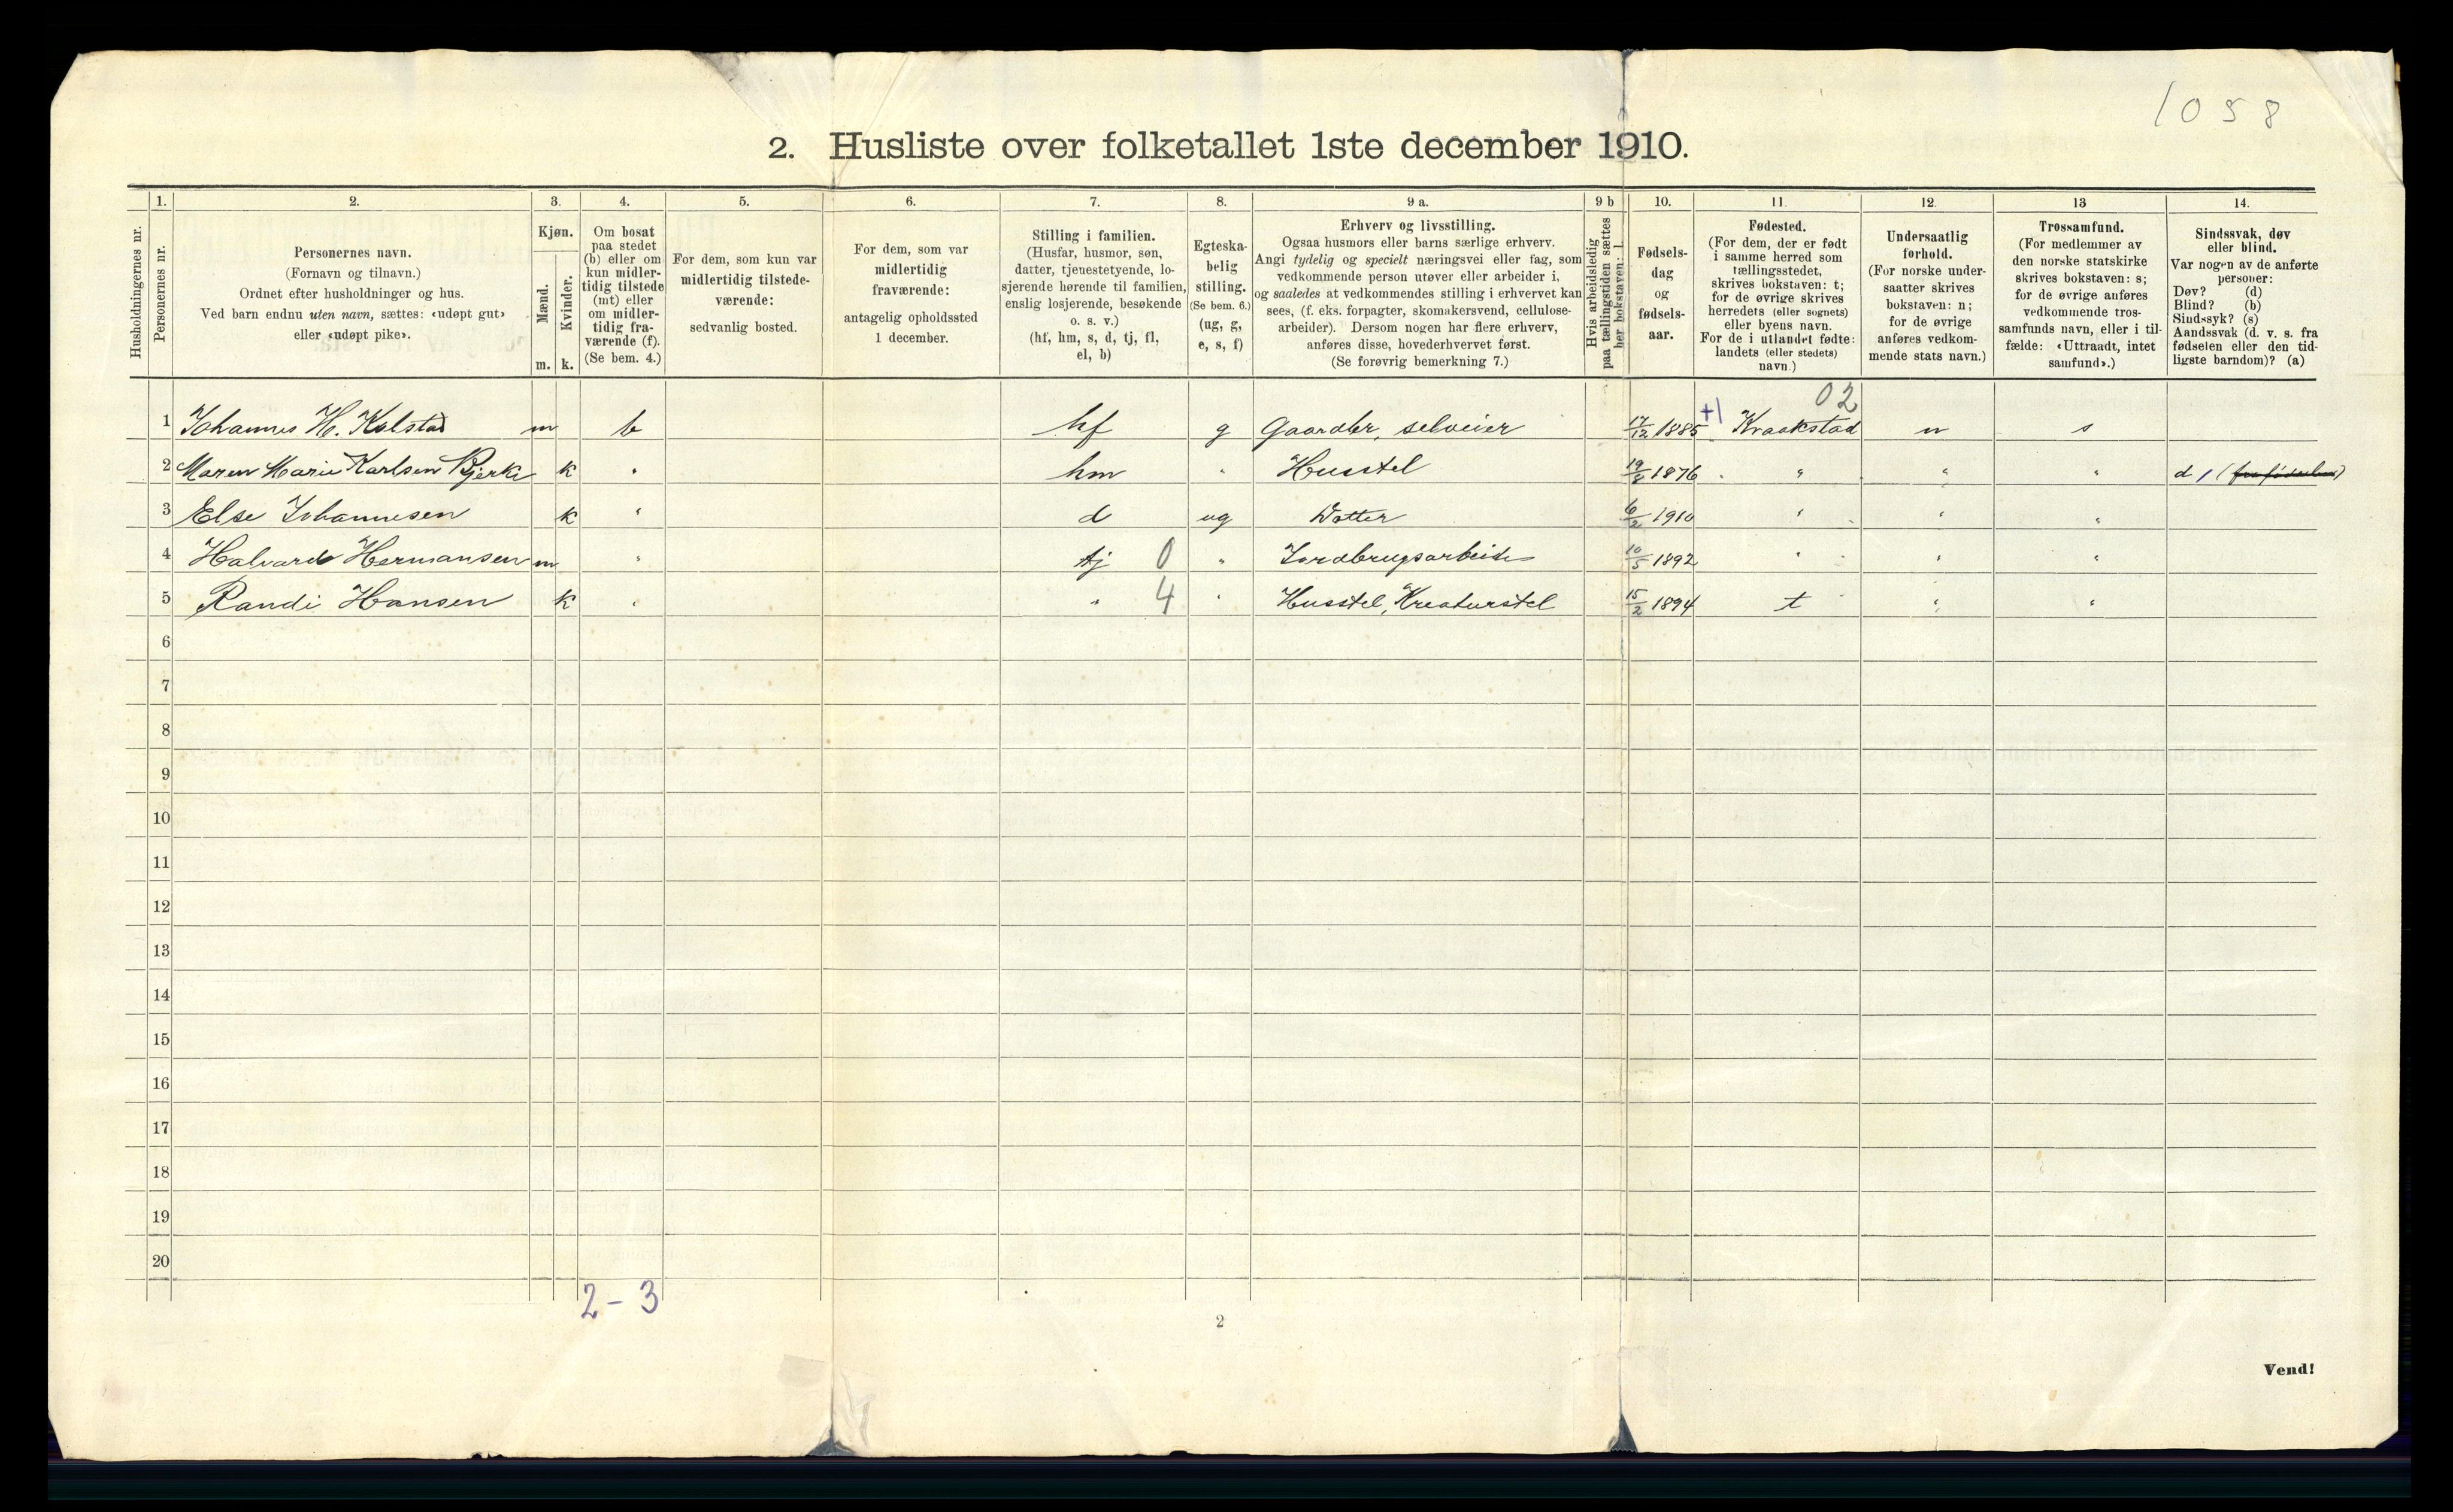 1058
2. Husliste over folketallet 1ste december 1910.
1. 2. 3. 4. 5. 6. 7. 8. 9 a. 9 b 10. 11. 12. 13 14.
Husholdningernes nr.
Personernes nr.
Personernes navn.
(Fornavn og tilnavn.)
Ordnet efter husholdninger og hus.
Ved barn endnu uten navn, sættes: «udøpt gut»
eller «udøpt pike».
Kjøn.
Mænd.
Kvinder.
m. k.
Om bosat
paa stedet
(b) eller om
kun midler-
tidig tilstede
(mt) eller
om midler-
tidig fra-
værende (f).
(Se bem. 4.)
For dem, som kun var
midlertidig tilstede-
værende:
sedvanlig bosted.
For dem, som var
midlertidig
fraværende:
antagelig opholdssted
1 december.
Stilling i familien.
(Husfar, husmor, søn,
datter, tjenestetyende, lo-
sjerende hørende til familien,
enslig losjerende, besøkende
o. s. v.)
(hf, hm, s, d, tj, fl,
el, b)
Egteska-
belig
stilling.
(Se bem. 6.)
(ug, g,
e, s, f)
Erhverv og livsstilling.
Ogsaa husmors eller barns særlige erhverv.
Angi tydelig og specielt næringsvei eller fag, som
vedkommende person utøver eller arbeider i,
og saaledes at vedkommendes stilling i erhvervet kan
sees, (f. eks. forpagter, skomakersvend, cellulose-
arbeider). Dersom nogen har flere erhverv,
anføres disse, hovederhvervet først.
(Se forøvrig bemerkning 7.)
Hvis arbeidsledig
paa tællingstiden sættes
her bokstaven: l.
Fødsels-
dag
og
fødsels-
aar.
Fødested.
(For dem, der er født
i samme herred som
tællingsstedet,
skrives bokstaven: t;
for de øvrige skrives
herredets (eller sognets)
eller byens navn.
For de i utlandet fødte:
landets (eller stedets)
navn.)
Undersaatlig
forhold.
(For norske under-
saatter skrives
bokstaven: n;
for de øvrige
anføres vedkom-
mende stats navn.)
Trossamfund.
(For medlemmer av
den norske statskirke
skrives bokstaven: s;
for de øvrige anføres
vedkommende tros-
samfunds navn, eller i til-
fælde: «Uttraadt, intet
samfund».)
Sindssvak, døv
eller blind.
Var nogen av de anførte
personer:
Døv? (d)
Blind? (b)
Sindssyk? (s)
Aandssvak (d. v. s. fra
fødselen eller den tid-
ligste barndom)? (a)
02
1 Johannes H. Kolstad m b hf g Gaardbr, selveier 17/12 1885 +1 Kraakstad n s
2 Maren Marie Karlsen Bjerke k " hm " Husstel 19/8 1876 " " " d, (fra fødselen)
3 Else Johannesen k " d ug Datter 6/2 1910 " " "
4 Halvard Hermansen m " tj 0 " Jordbrugsarbeide 10/5 1892 " " "
5 Randi Hansen k " " 4 " Husstel, Kreaturstel 15/2 1894 t " "
6
7
8
9
10
11
12
13
14
15
16
17
18
19
20
2-3
2
Vend!